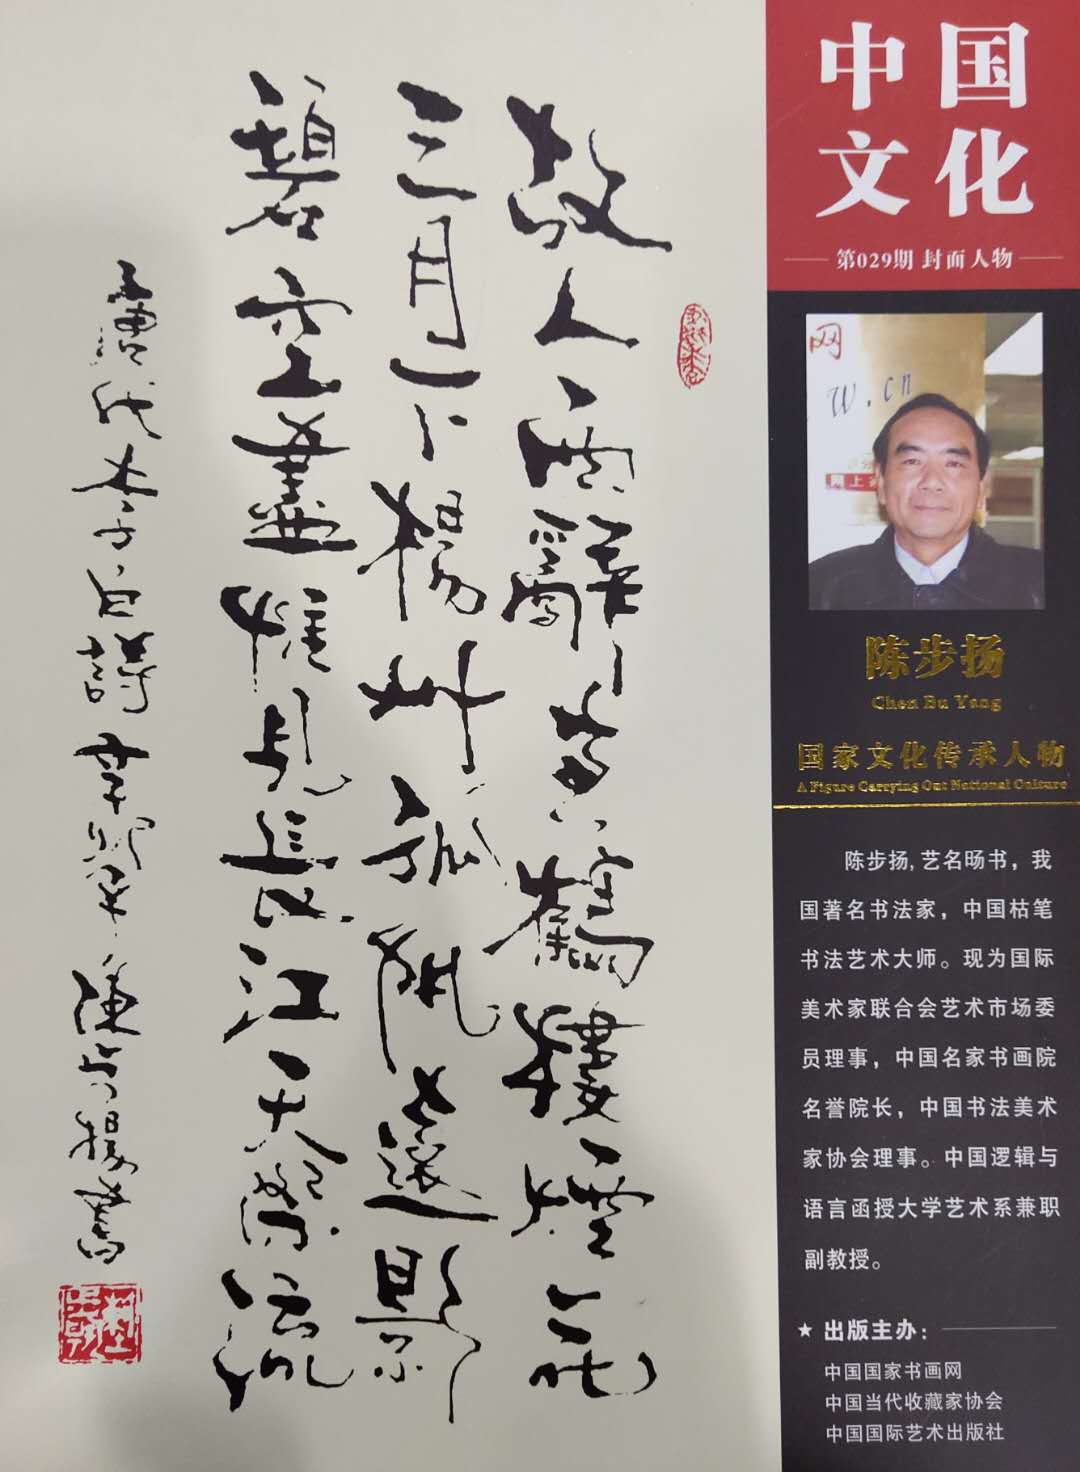 故人西辭黄鶴樓煙花
三月下揚州孤帆遠影
碧空盡惟見長江天際流
唐代李白詩辛卯年陳步揚書
中国
文化
第029期 封面人物
网
W.cn
陈步扬
Chen Bu Yang
国家文化传承人物
A Figure Carrying Out National Culture
陈步扬,艺名旸书，我
国著名书法家，中国枯笔
书法艺术大师。现为国际
美术家联合会艺术市场委
员理事，中国名家书画院
名誉院长，中国书法美术
家协会理事。中国逻辑与
语言函授大学艺术系兼职
副教授。
★ 出版主办：
中国国家书画网
中国当代收藏家协会
中国国际艺术出版社